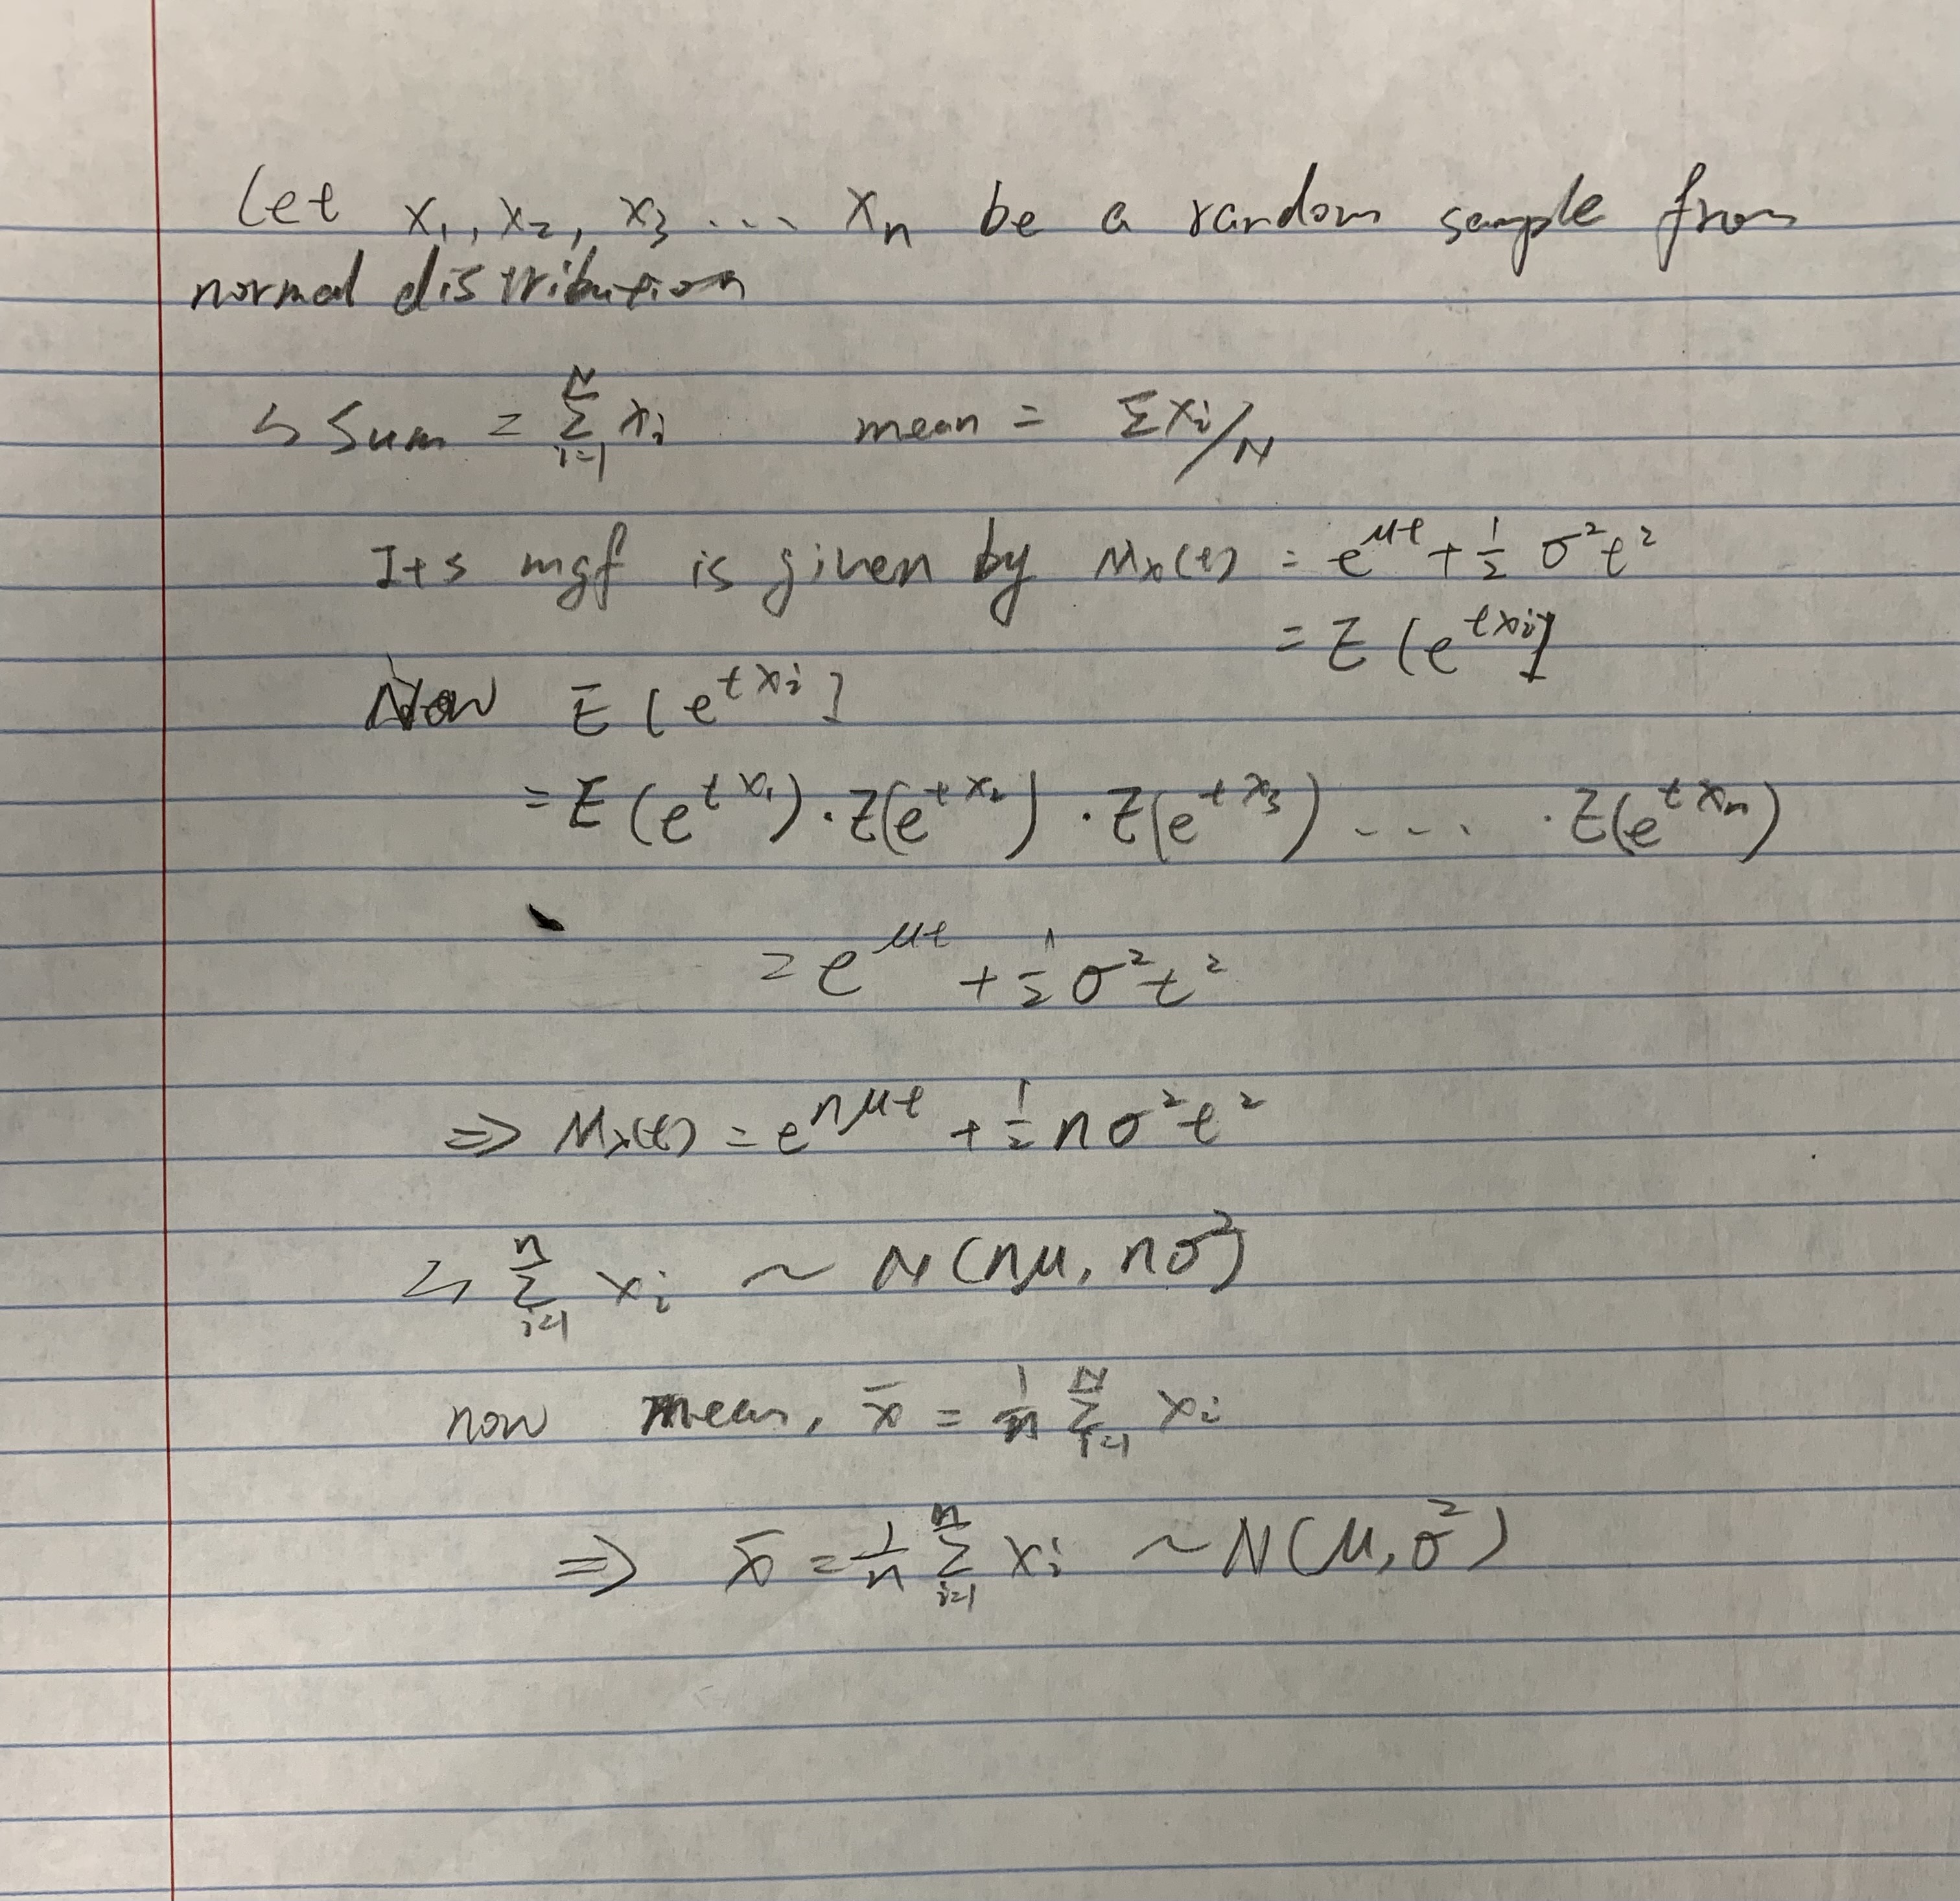 Let x₁, x₂, x₃ ... xₙ be a random sample from
normal distribution
↳ Sum = Σᵢ₌₁ᴺ xᵢ mean = Σxᵢ/N
Its mgf is given by Mₓ(t) = e^{μt} + ½ σ²t²
= E(e^{txᵢ}]
Now E(e^{txᵢ}]
= E(e^{tx₁}) · E(e^{tx₂}) · E(e^{tx₃}) .... · E(e^{txₙ})
= e^{μt} + ½ σ²t²
⇒ Mₓ(t) = e^{nμt} + ½ nσ²t²
↳ Σᵢ₌₁ⁿ xᵢ ~ N(nμ, nσ²)
now mean, x̄ = 1/n Σᵢ₌₁ᴺ xᵢ
⇒ x̄ = 1/n Σᵢ₌₁ⁿ xᵢ ~ N(μ, σ²)